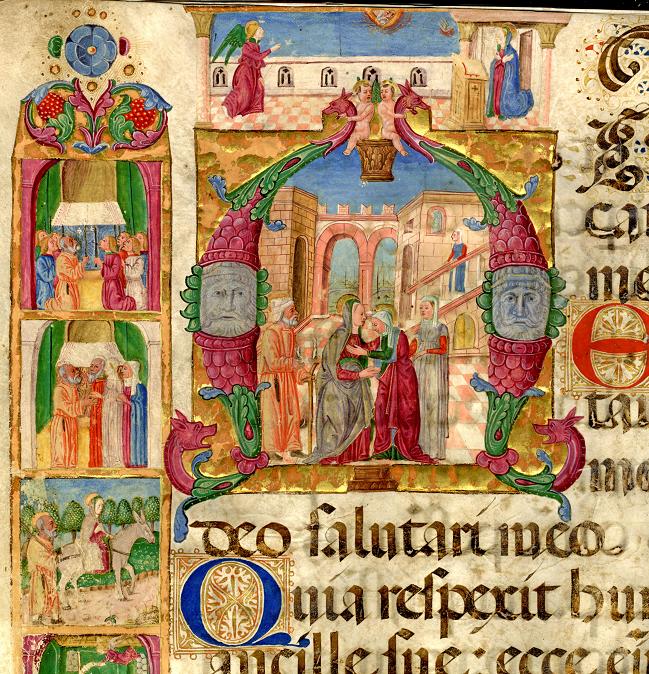 ca
me
E
ta
deo salutari meo
Quia respexit hu
ancille sue: ecce